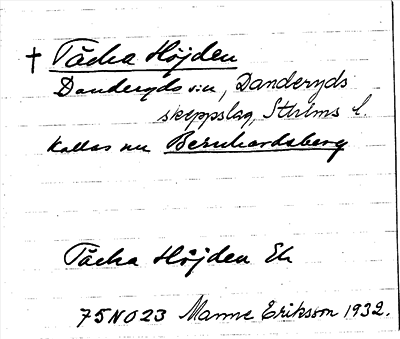 † Täcka Höjden
Danderyds s:n, Danderyds
skeppslag, Sthlms l.
Kallas nu Bernhardsberg
Täcka Höjden Ek
75NO23 Manne Eriksson 1932.